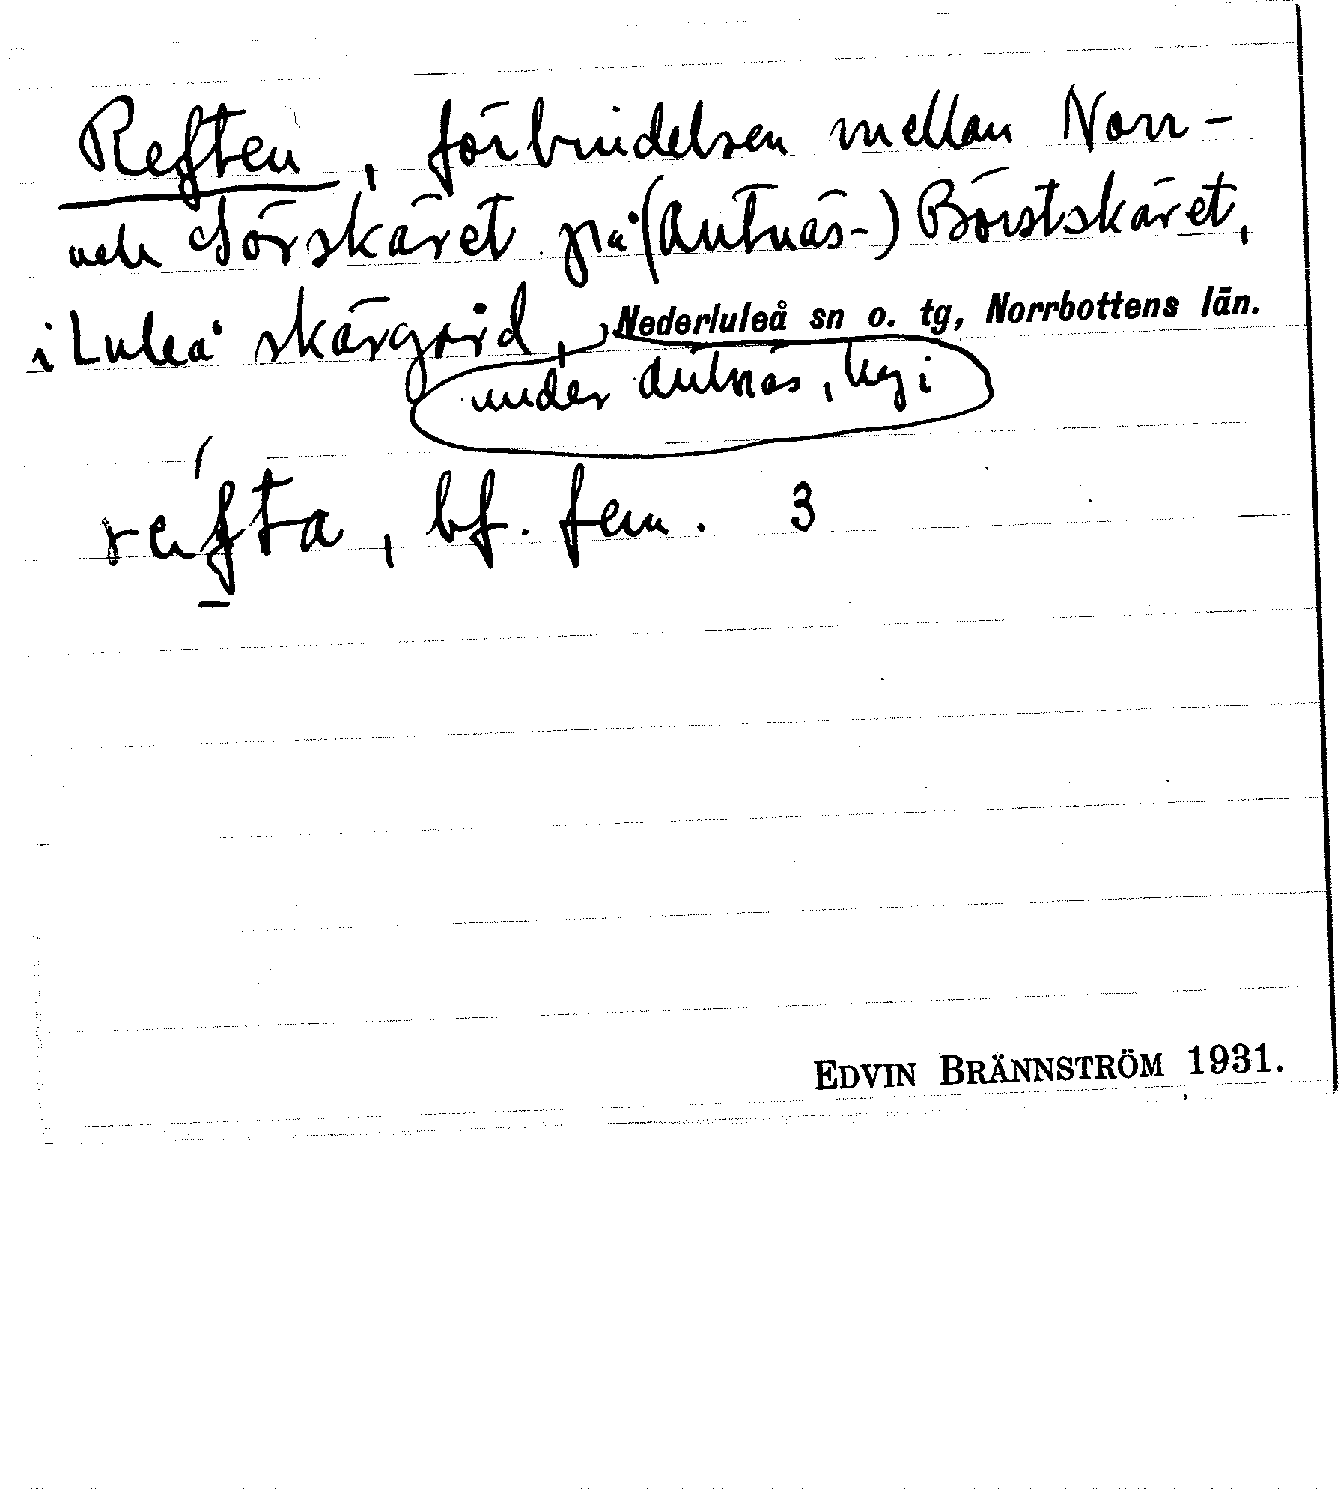 Reften, förbindelsen mellan Norr-
och Sörskäret på (Antnäs-) Börstskäret,
i Luleå skärgård, Nederluleå sn o. tg, Norrbottens län.
under Antnäs, hg i
refta, bf. fem. 3
EDVIN BRÄNNSTRÖM 1931.